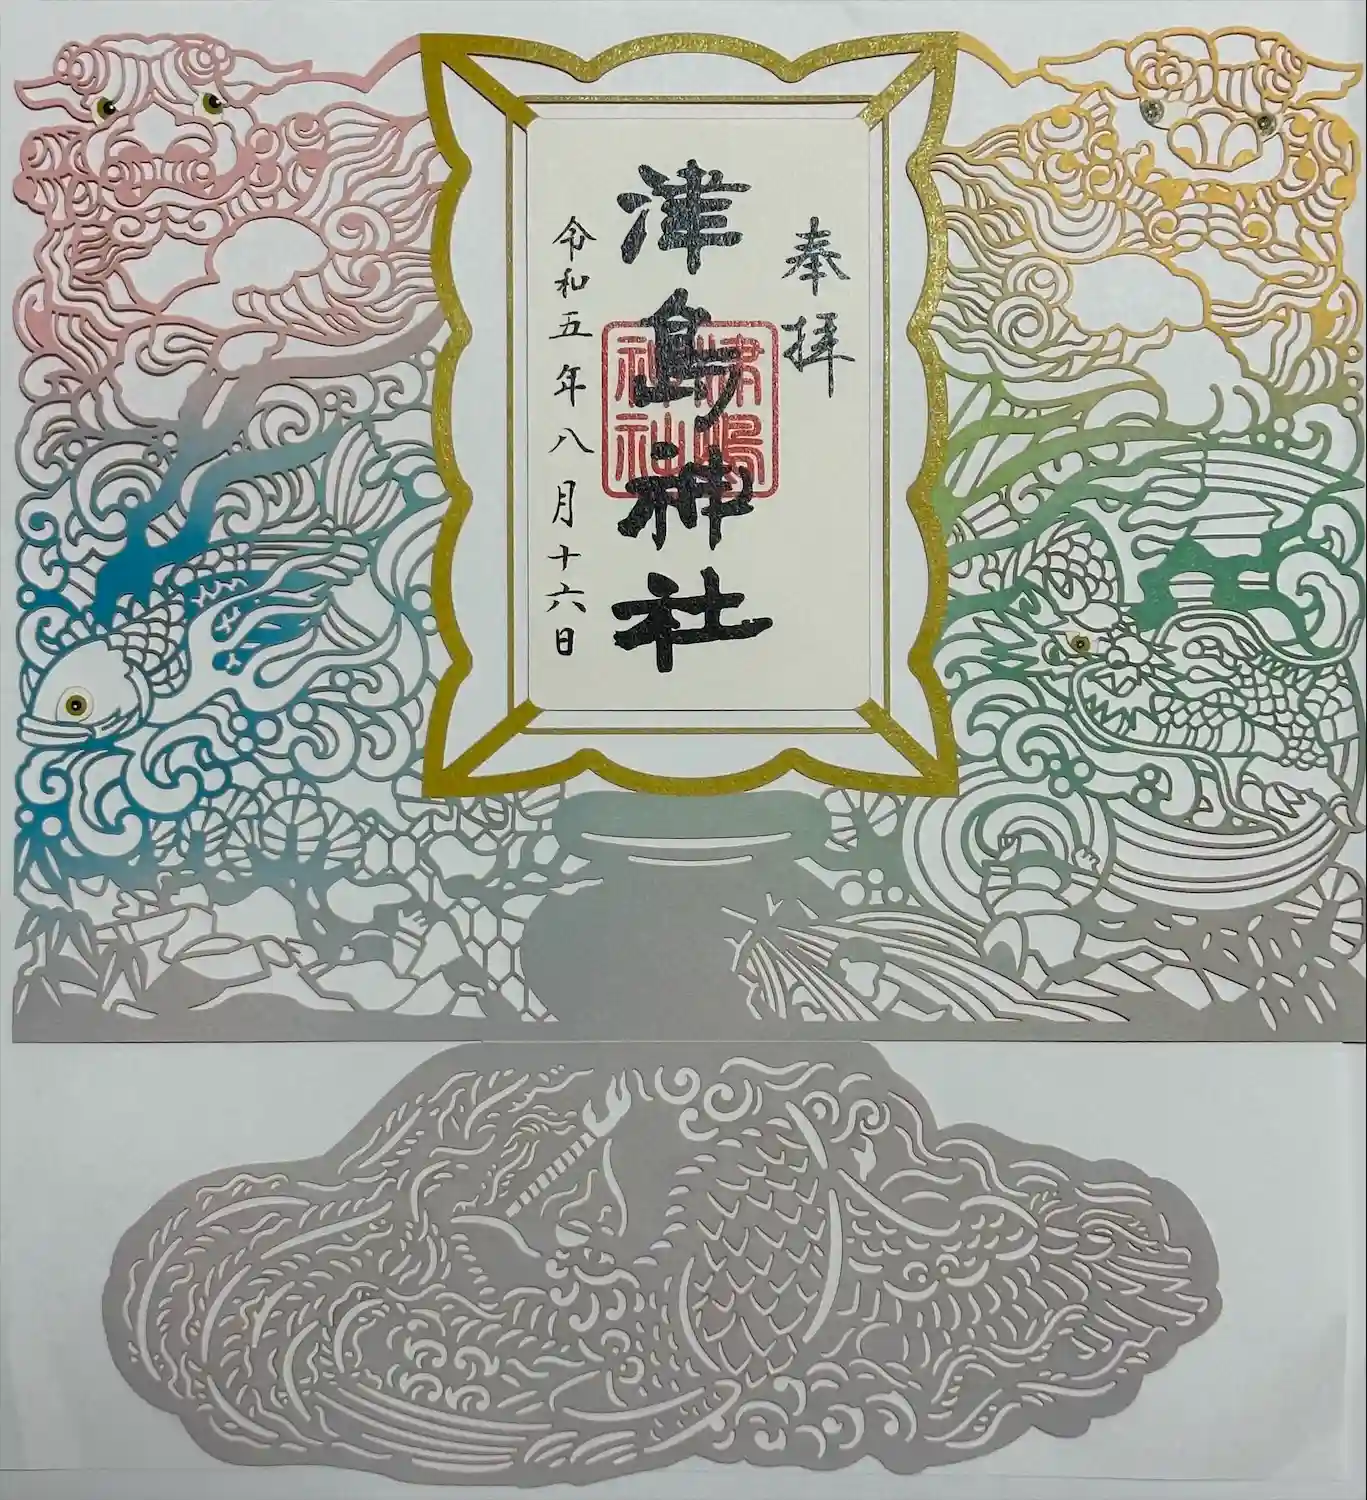 奉拝
津島神社
津嶋神社
令和五年八月十六日